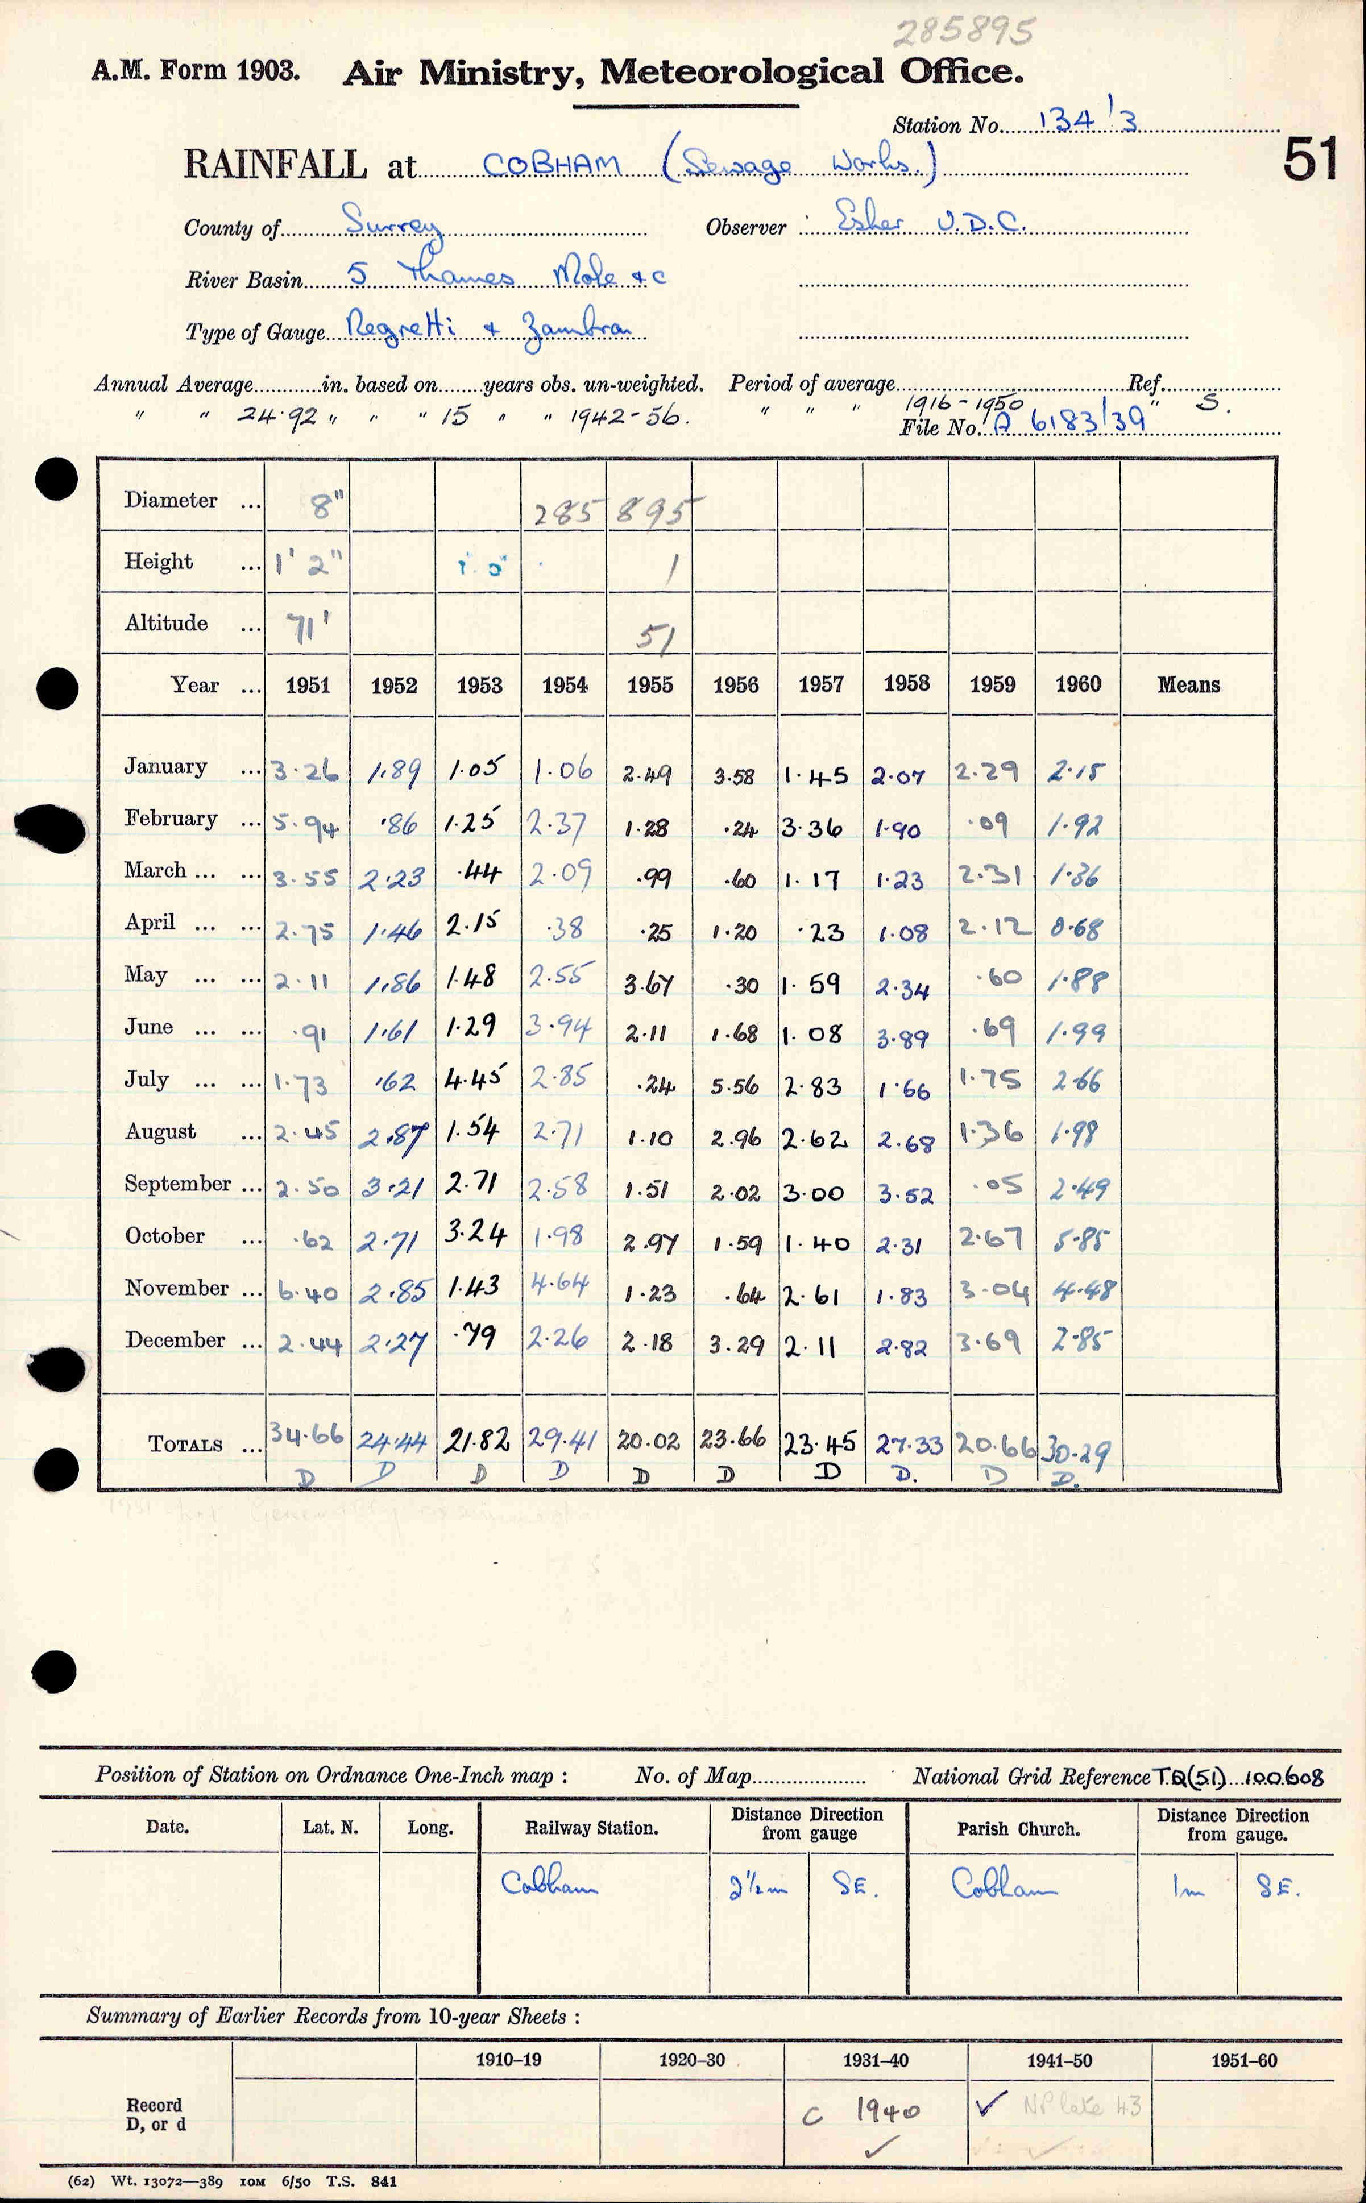 285895
A.M. Form 1903. Air Ministry, Meteorological Office.
Station No. 134/3
51
RAINFALL at COBHAM (Sewage Works.)
County of Surrey Observer : Esher U.D.C.
River Basin 5 Thames Mole & C
Type of Gauge Negretti & Zambra
Annual Average in. based on years obs. un-weighted. Period of average Ref.
" " 24.92 " " " 15 " " 1942-56. " " " 1916-1950 " S.
File No. A 6183/39
Diameter ... 8" 285 895
Height ... 1' 2" 1' 0" 1
Altitude ... 71' 51
Year ... 1951 1952 1953 1954 1955 1956 1957 1958 1959 1960 Means
January ... 3.26 1.89 1.05 1.06 2.49 3.58 1.45 2.07 2.29 2.15
February ... 5.94 .86 1.25 2.37 1.28 .24 3.36 1.90 .09 1.92
March ... ... 3.55 2.23 .44 2.09 .99 .60 1.17 1.23 2.31 1.36
April ... ... 2.75 1.46 2.15 .38 .25 1.20 .23 1.08 2.12 0.68
May ... ... 2.11 1.86 1.48 2.55 3.67 .30 1.59 2.34 .60 1.88
June ... ... .91 1.61 1.29 3.94 2.11 1.68 1.08 3.89 .69 1.99
July ... ... 1.73 .62 4.45 2.85 .24 5.56 2.83 1.66 1.75 2.66
August ... 2.45 2.87 1.54 2.71 1.10 2.96 2.62 2.68 1.36 1.98
September ... 2.50 3.21 2.71 2.58 1.51 2.02 3.00 3.52 .05 2.49
October ... .62 2.71 3.24 1.98 2.97 1.59 1.40 2.31 2.67 5.85
November ... 6.40 2.85 1.43 4.64 1.23 .64 2.61 1.83 3.04 4.48
December ... 2.44 2.27 .79 2.26 2.18 3.29 2.11 2.82 3.69 2.85
TOTALS ... 34.66 24.44 21.82 29.41 20.02 23.66 23.45 27.33 20.66 30.29
D D D D D D D D. D D.
Position of Station on Ordnance One-Inch map : No. of Map National Grid Reference T.Q(51) 100.608
Date. Lat. N. Long. Railway Station. Distance Direction from gauge Parish Church. Distance Direction from gauge.
Cobham 2½m SE. Cobham 1m SE.
Summary of Earlier Records from 10-year Sheets :
1910-19 1920-30 1931-40 1941-50 1951-60
Record D, or d C 1940 ✓ ✓ NP late 43
(62) Wt. 13072—389 10M 6/50 T.S. 841